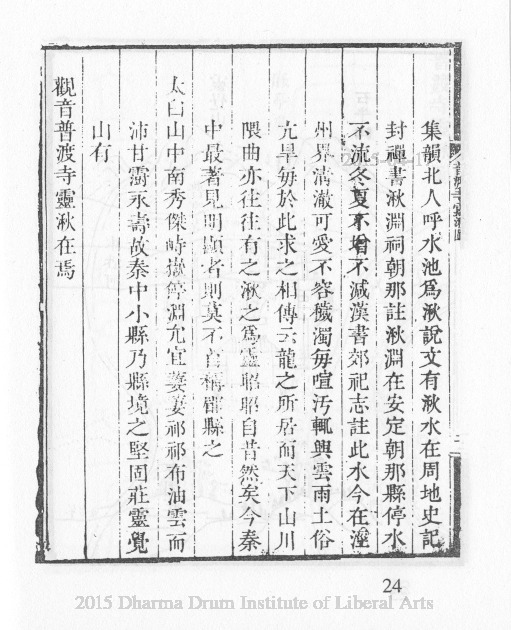 集韻北人呼水池爲湫說文有湫水在周地史記
封禪書湫淵祠朝那註湫淵在安定朝那縣停水
不流冬夏不增不減漢書郊祀志註此水今在涇
州界清澈可愛不容穢濁每喧汚輒興雲雨土俗
亢旱每於此求之相傳云龍之所居而天下山川
隈曲亦往往有之湫之爲靈昭昭自昔然矣今秦
中最著見明顯者則莫不首稱郿縣之
太白山中南秀傑峙嶽停淵尤宜萋萋祁祁布油雲而
沛甘霨永壽故秦中小縣乃縣境之堅固莊靈覺
山有
觀音普渡寺靈湫在焉
24
2015 Dharma Drum Institute of Liberal Arts